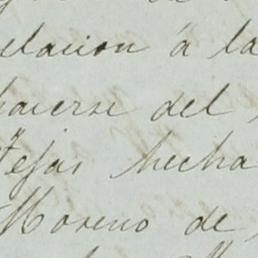 elacion á la
hacerse del
Tejas hecha
Moreno de